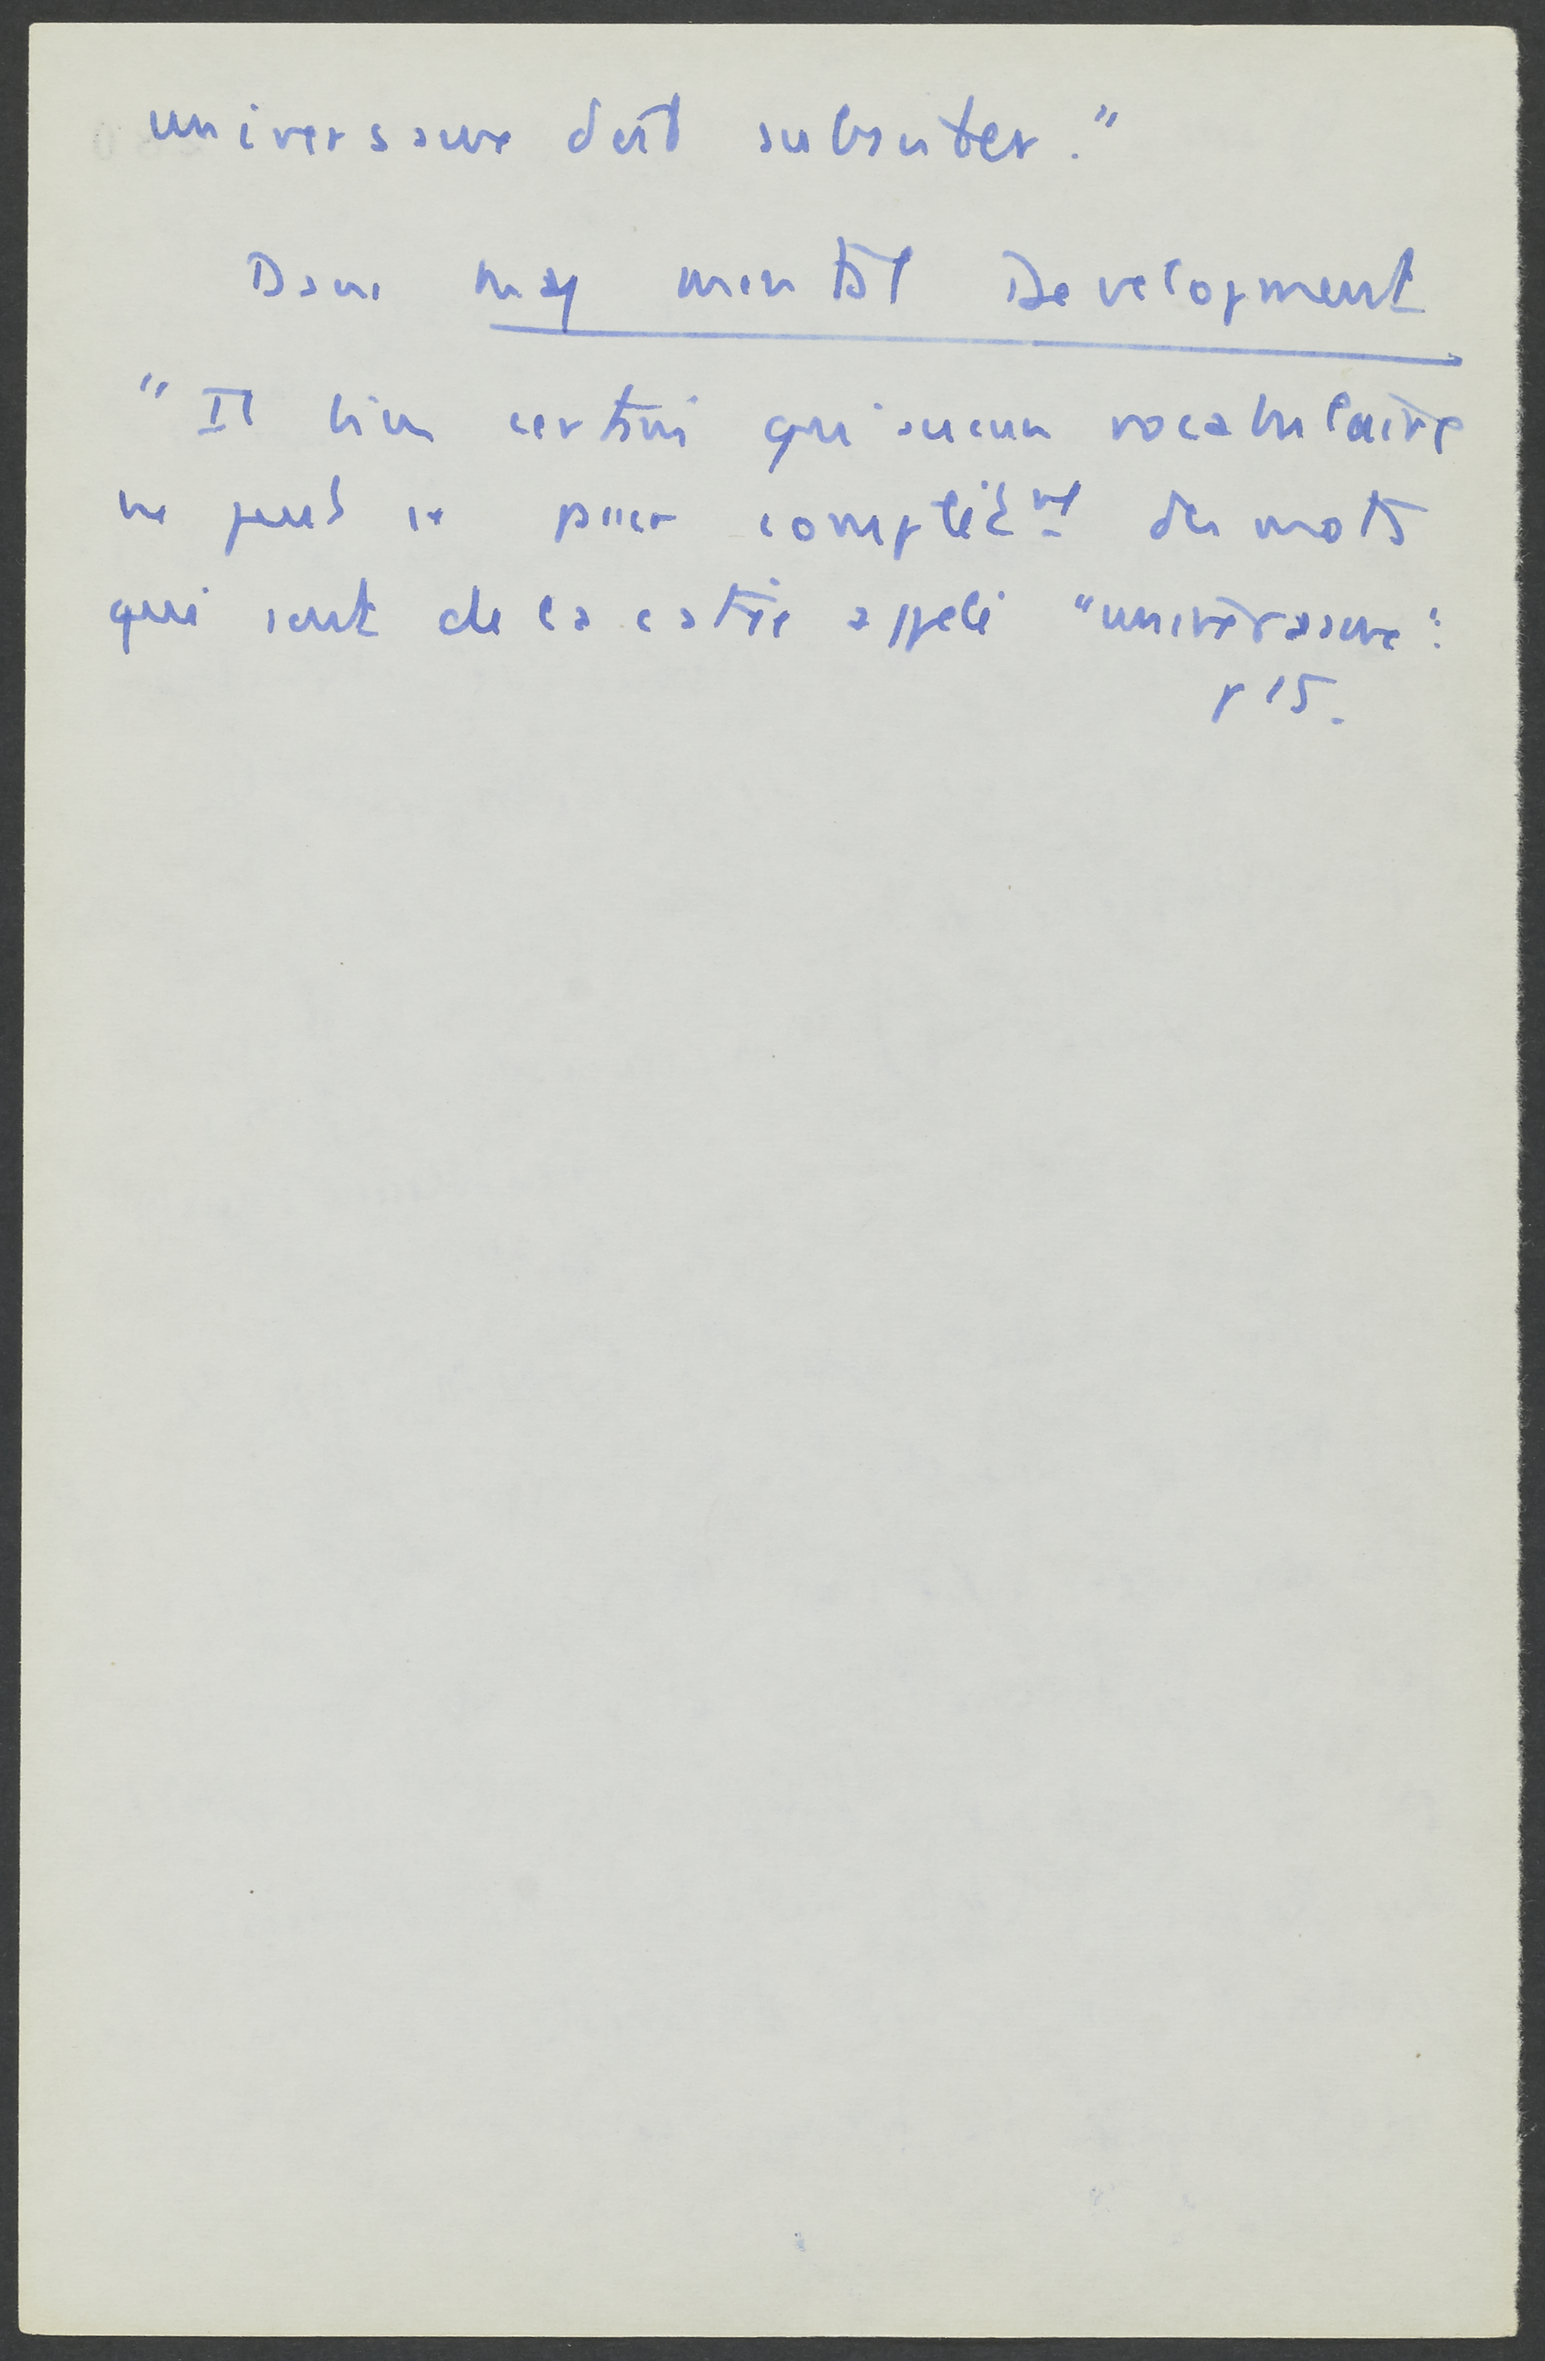 universaux doit subsister."
Dans my mental Development
" Il bien certain qu'aucun vocabulaire
ne peut se passer complèt^mt des mots
qui sont de la catie appelé "universaux".
p 15.